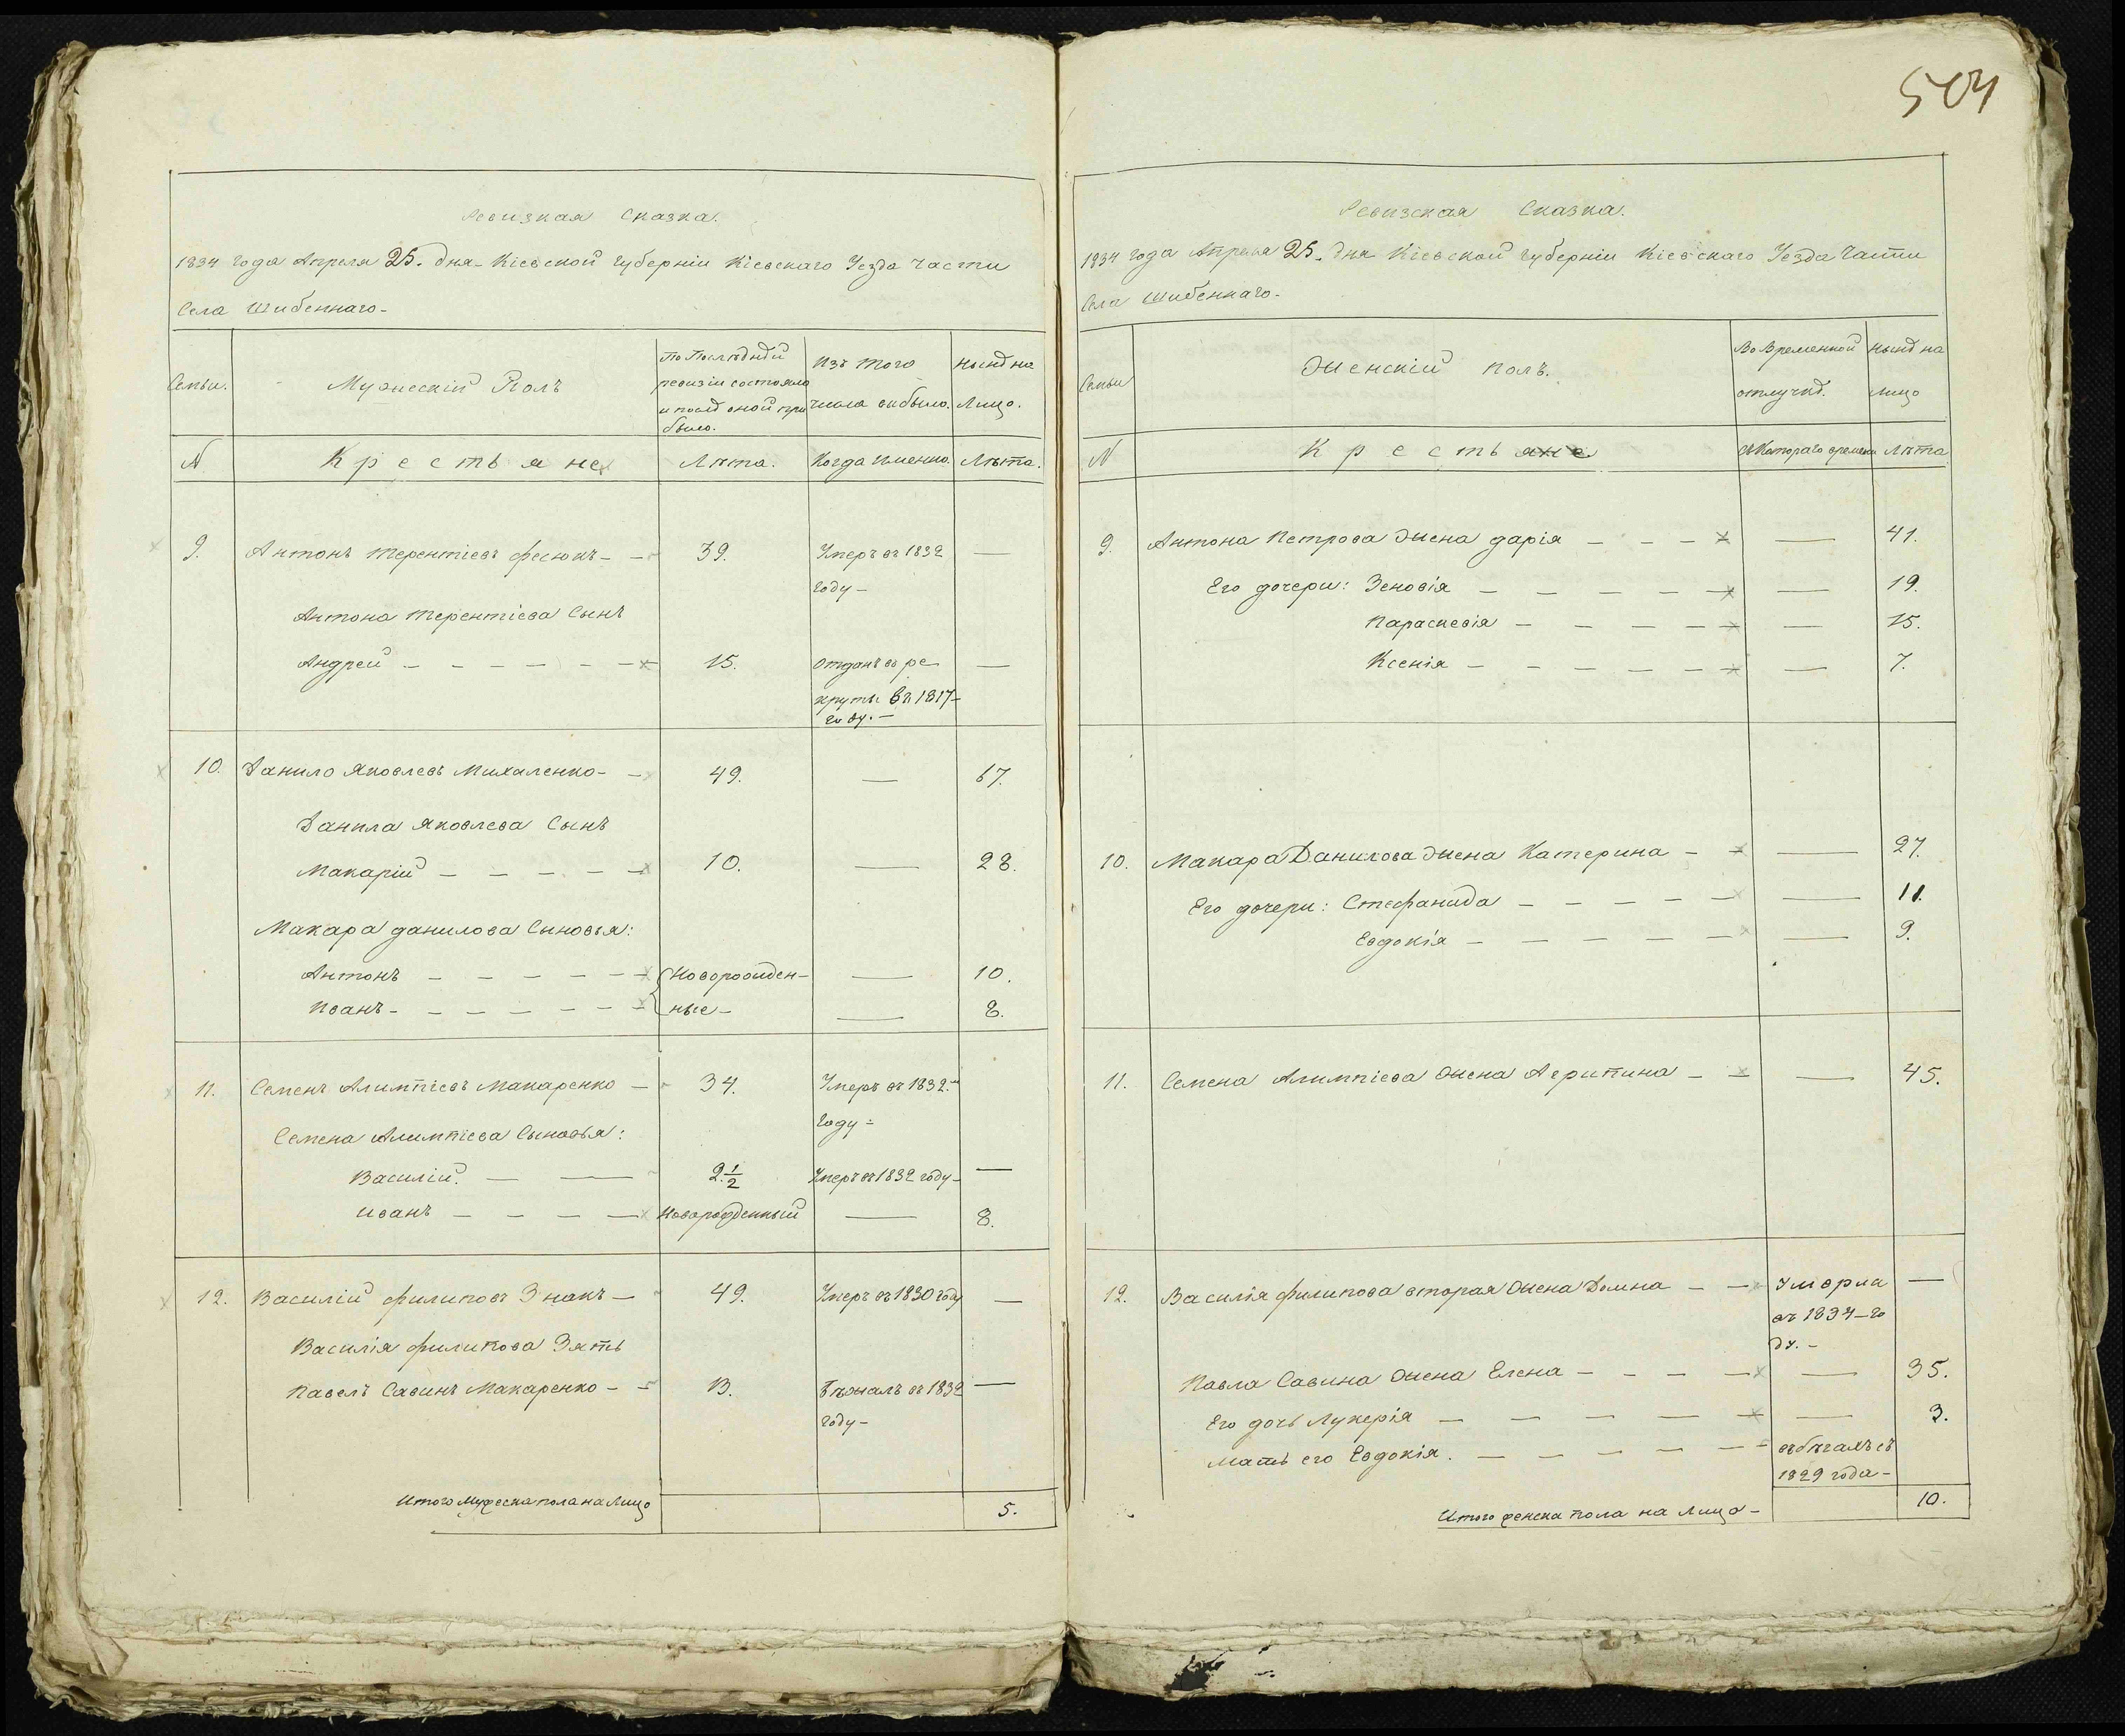 504
Ревизкая Сказка.
1834 года Апреля 25. дня Кіевской губерніи Кіевскаго Уезда Части
Села Шибеннаго.
Семьи.
Мужескій Полъ
По Последней
ревизіи состояло
и после оной при
было.
Изъ того
числа выбыло.
Ныне на
Лицо.
N
Крестьяне
Лѣта.
Когда Именно.
Лѣта.
9. Антонъ Терентіевъ Фесюкъ 39. Умеръ въ 1832 —
году
Антона Терентіева Сынъ
Андрей 15. отданъ въ ре —
круты въ 1817
году.
10. Данило Яковлевъ Михаленко 49. — 67.
Данила Яковлева Сынъ
Макарій 10. — 28.
Макара Данилова Сыновья:
Антонъ Новорожден- — 10.
Иванъ ные — 8.
11. Семенъ Алимпіевъ Макаренко 34. Умеръ въ 1832.
году
Семена Алимпіева Сыновья:
Василій 2 1/2 Умеръ въ 1832 году —
Иванъ Новорожденный — 8.
12. Василій Филиповъ Знакъ 49. Умеръ въ 1830 году —
Василія Филипова Зять
Павелъ Савинъ Макаренко 13. Бѣжалъ въ 1832 —
году
Итого Мужеска пола на Лицо 5.
Ревизская Сказка.
1834 года Апреля 25. дня Кіевской губерніи Кіевскаго Уезда Части
Села Шибеннаго.
Семьи
Женскій полъ.
Во Временной
отлучке.
Ныне на
лицо
N
Крестьяне
Съ Котораго времени
Лѣта
9. Антона Петрова Жена Дарія — 41.
Его дочери: Зеновія — 19.
Параскевія — 15.
Ксенія — 7.
10. Макара Данилова Жена Катерина — 27.
Его дочери: Стефанида — 11.
Евдокія — 9.
11. Семена Алимпіева Жена Агрипина — 45.
12. Василія Филипова вторая Жена Домна Умерла —
въ 1834 го
ду.
Павла Савина Жена Елена — 35.
Его дочь Лукерія — 3.
Мать его Евдокія.
1829 года
Итого женска пола на лицо 10.